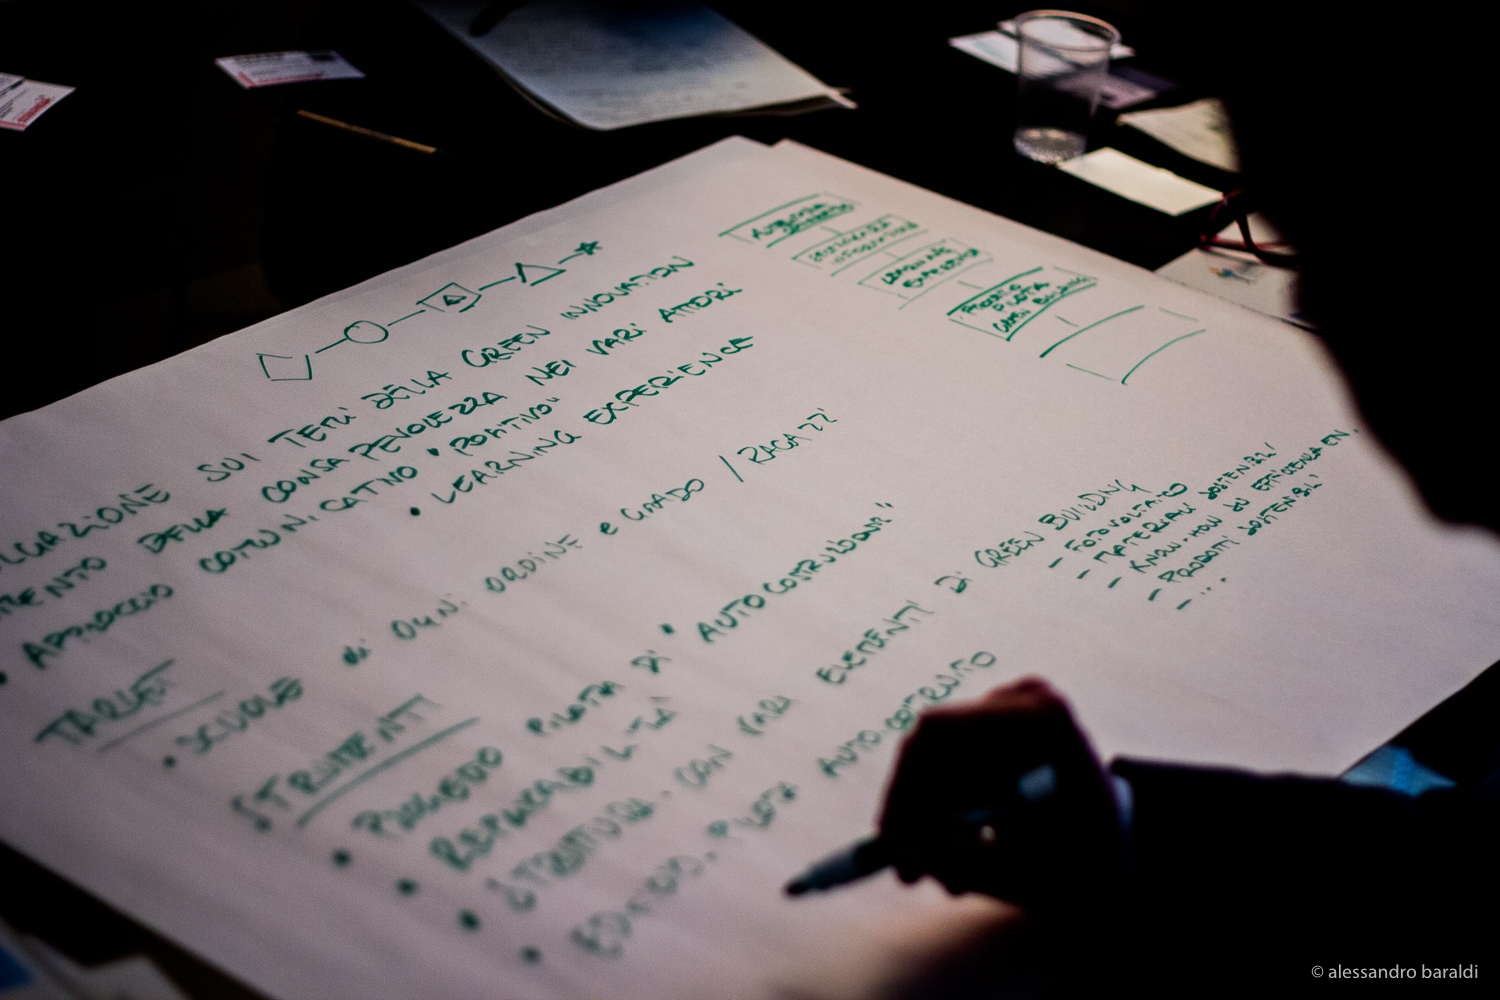 SUI TEMI DELLA GREEN INNOVATION
DELLA CONSAPEVOLEZZA NEI VARI ATTORI
• APPROCCIO COMUNICATIVO "POSITIVO"
• LEARNING EXPERIENCE
TARGET
• SCUOLE di OGNI ORDINE e GRADO / RAGAZZI
STRUMENTI
• PROGETTO PILOTA DI "AUTOCOSTRUZIONE"
• REPLICABILITÀ
• STRUTTURA CON VARI ELEMENTI DI GREEN BUILDING
- FOTOVOLTAICO
- MATERIALI SOSTENIBILI
- KNOW-HOW SU EFFICIENZA EN.
- PRODOTTI SOSTENIBILI
- ...
• EDIFICIO PILOTA AUTOCOSTRUITO
LEARNING
EXPERIENCE
PROGETTO
PILOTA
GREEN BUILDING
© alessandro baraldi